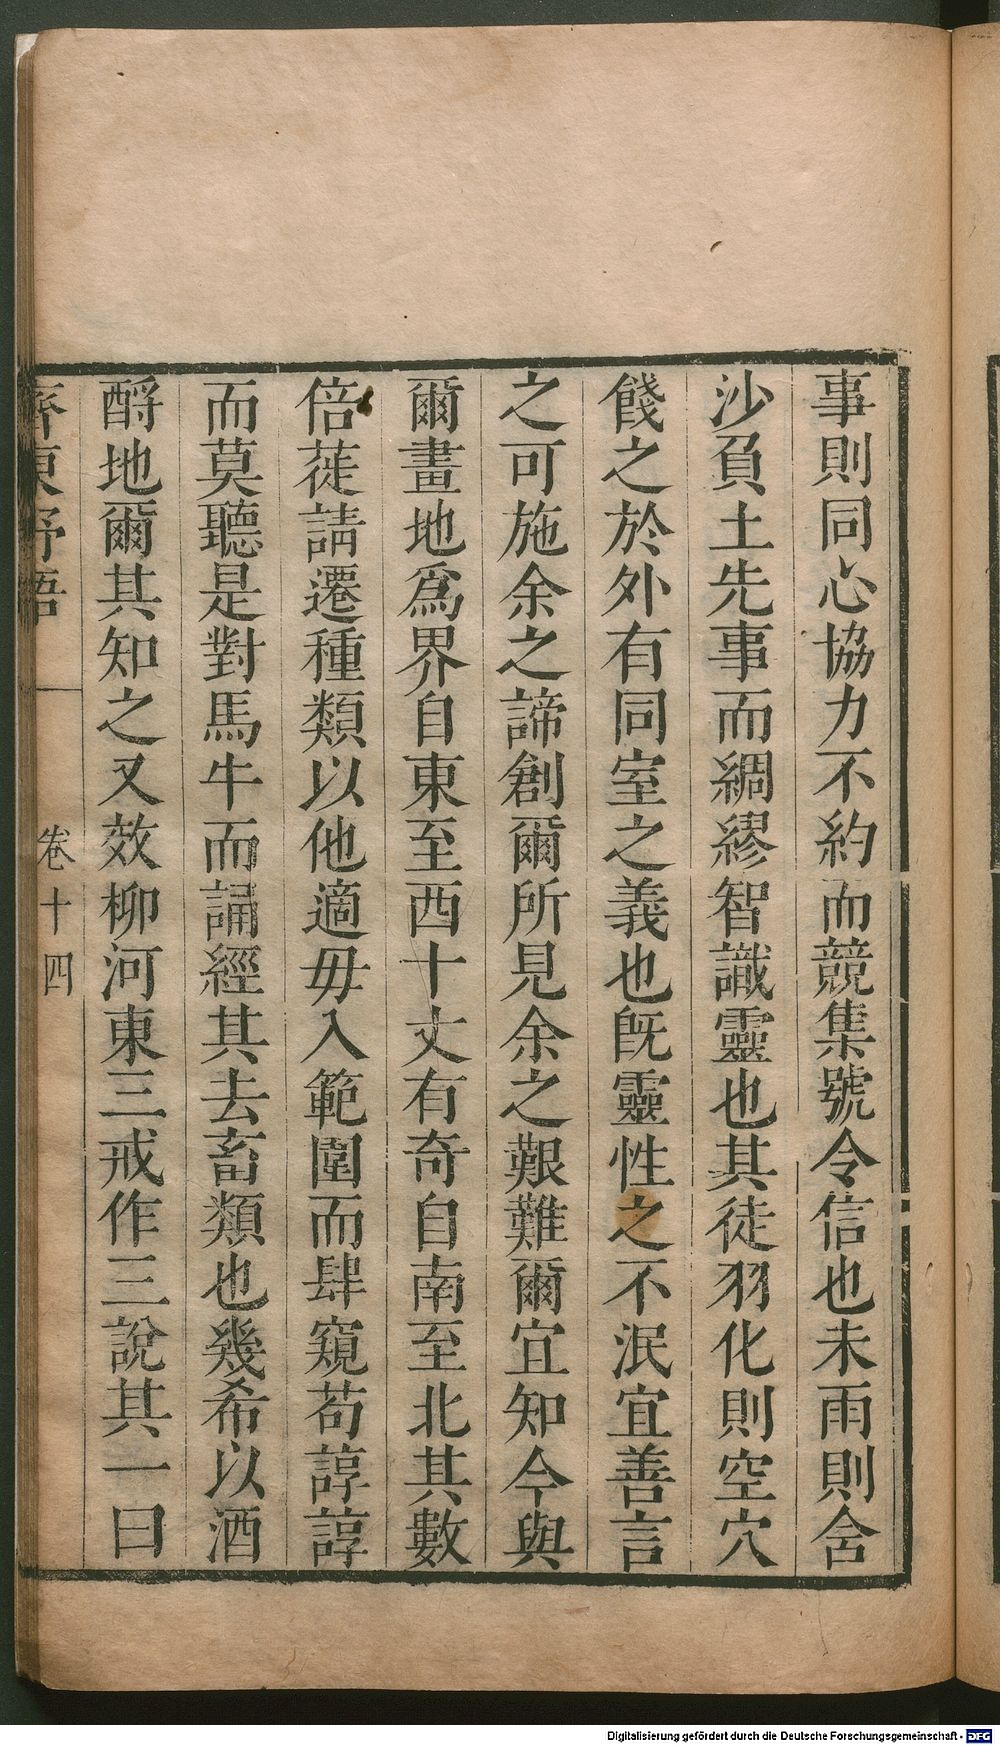 事則同心協力不約而競集號令信也未雨則含
沙負土先事而綢繆智識靈也其徒羽化則空穴
餞之於外有同室之義也旣靈性之不泯宜善言
之可施余之諦創爾所見余之艱難爾宜知今與
爾畫地爲界自東至西十丈有奇自南至北其數
倍蓰請遷種類以他適毋入範圍而肆窺苟諄諄
而莫聽是對馬牛而誦經其去畜類也幾希以酒
酹地爾其知之又效柳河東三戒作三說其一曰
齊東野語
卷十四
Digitalisierung gefördert durch die Deutsche Forschungsgemeinschaft - DFG